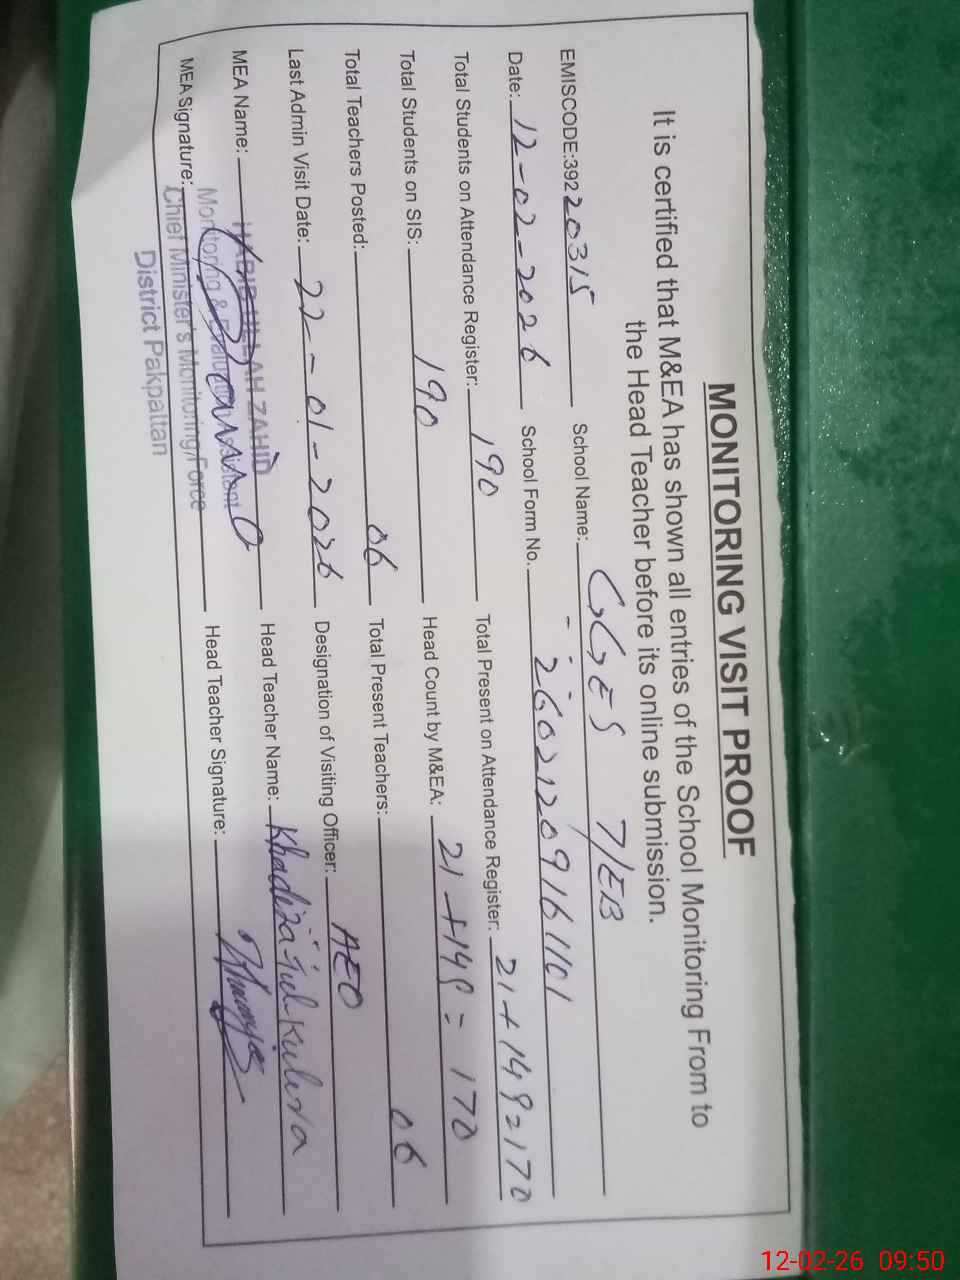 MONITORING VISIT PROOF
It is certified that M&EA has shown all entries of the School Monitoring From to
the Head Teacher before its online submission.
EMISCODE:39220315 School Name: GGES 7/EB
Date: 12-02-2026 School Form No. - 26021209161101
Total Students on Attendance Register: 190 Total Present on Attendance Register: 21+149=170
Total Students on SIS: 190 Head Count by M&EA: 21+149=170
Total Teachers Posted: 06 Total Present Teachers: 06
Last Admin Visit Date: 22-01-2026 Designation of Visiting Officer: AEO
MEA Name: HABIB ULLAH ZAHID Head Teacher Name: Khadiza tul kubra
Monitoring & Evaluation Assistant
MEA Signature: Head Teacher Signature:
Chief Minister's Monitoring Force
District Pakpattan
12-02-26 09:50